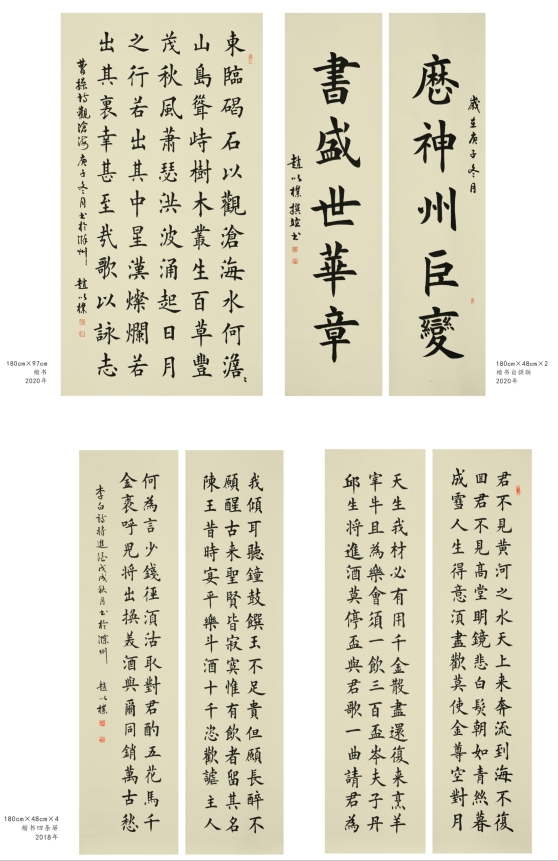 東臨碣石以觀滄海水何澹〻
山島聳峙樹木叢生百草豐
茂秋風蕭瑟洪波涌起日月
之行若出其中星漢燦爛若
出其裏幸甚至哉歌以詠志
曹操詩觀滄海庚子冬月书於滁州 趙以樸
180cm×97cm
楷书
2020年
歲在庚子冬月
厯神州巨變
書盛世華章
趙以樸撰竝书
180cm×48cm×2
楷书自撰联
2020年
君不見黃河之水天上来奔流到海不復
回君不見高堂明鏡悲白髮朝如青絲暮
成雪人生得意須盡歡莫使金尊空對月
天生我材必有用千金散盡還復来烹羊
宰牛且為樂會須一飲三百盃岑夫子丹
邱生將進酒莫停盃與君歌一曲請君為
我傾耳聽鐘鼓饌玉不足貴但願長醉不
願醒古来聖賢皆寂寞惟有飲者留其名
陳王昔時宴平樂斗酒十千恣歡謔主人
何為言少錢徑須沽取對君酌五花馬千
金裘呼兒將出換美酒與爾同銷萬古愁
李白詩將進酒戊戌秋月书於滁州 趙以樸
180cm×48cm×4
楷书四条屏
2018年